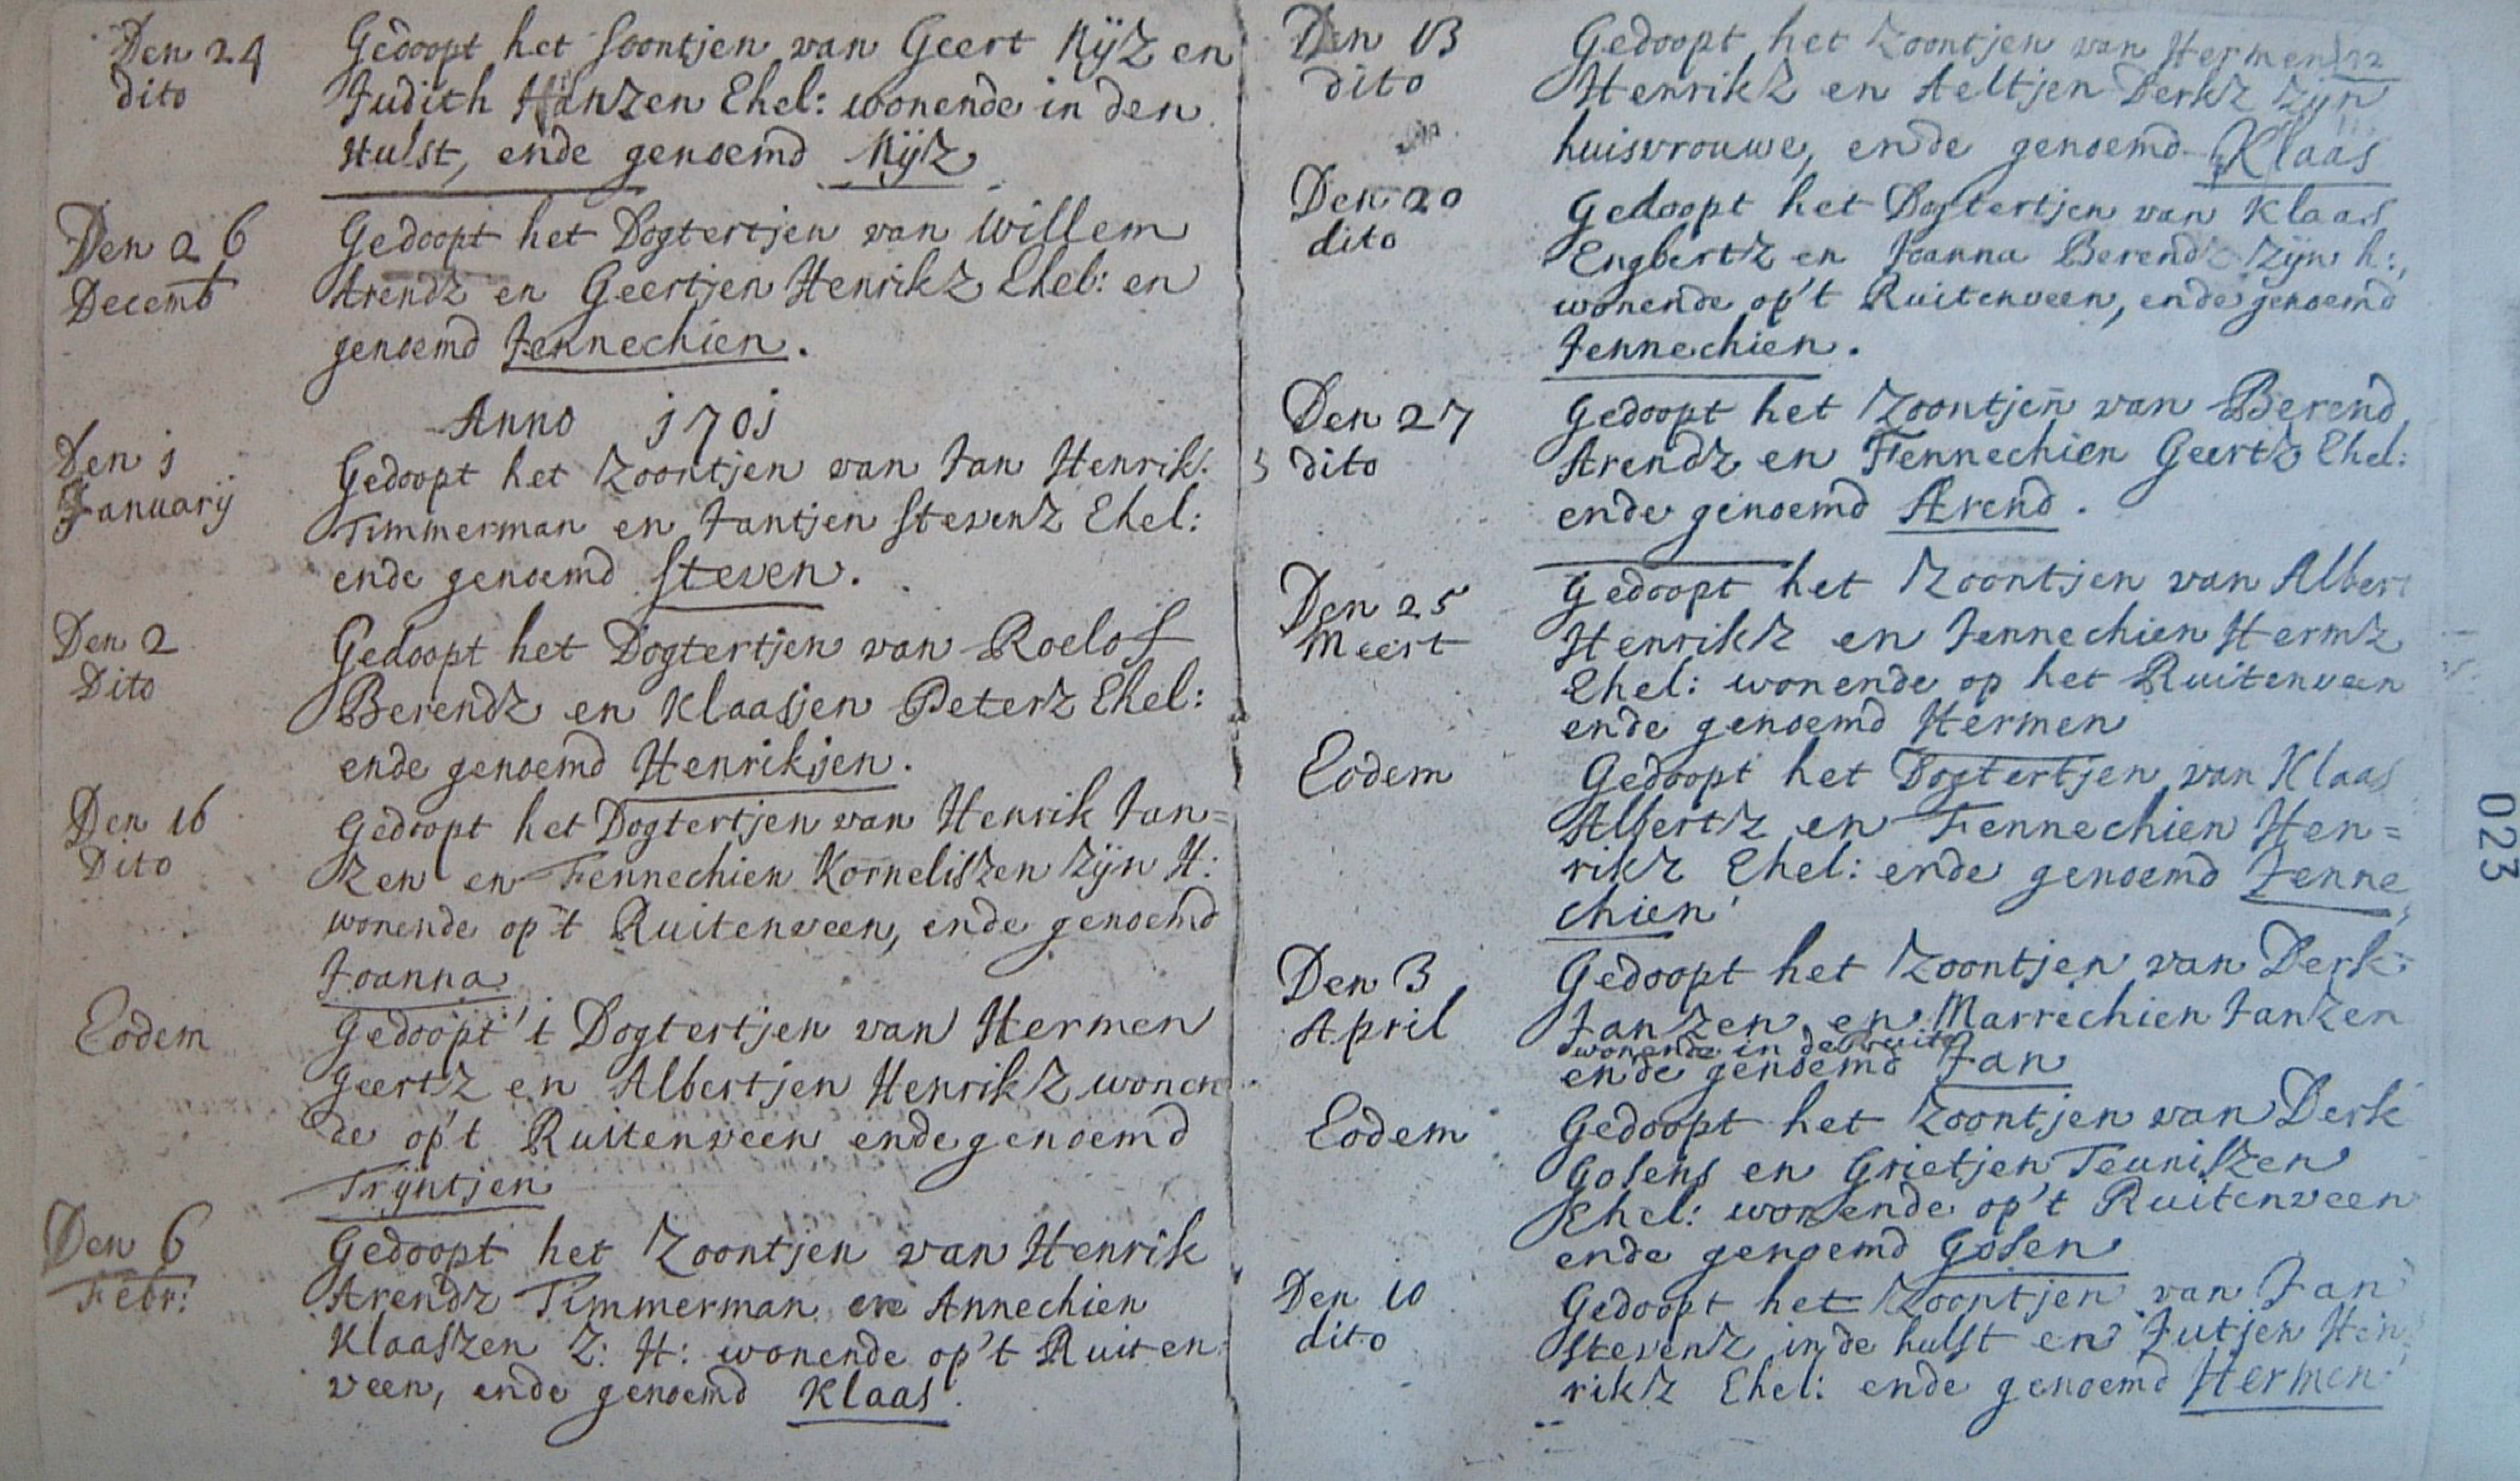 Den 24
dito
Gedoopt het soontjen van Geert Nijz en
Judith Hanzen Ehel: wonende in den
Hulst, ende genoemd Nijz
Den 26
Decemb
Gedoopt het Dogtertjen van Willem
Arendz en Geertjen Henrikz Ehel: en
genoemd Jennechien.
Anno 1701
Den 1
Januarij
Gedoopt het Zoontjen van Jan Henrik
Timmerman en Jantjen Stevenz Ehel:
ende genoemd Steven.
Den 2
Dito
Gedoopt het Dogtertjen van Roelof
Berendz en Klaasjen Peterz Ehel:
ende genoemd Henrikjen.
Den 16
Dito
Gedoopt het Dogtertjen van Henrik Jan=
zen en Fennechien Korneliszen zijn H:
wonende op't Ruitenveen, ende genoemd
Joanna
Eodem
Gedoopt 't Dogtertjen van Hermen
Geertz en Albertjen Henrikz wonen
de op't Ruitenveen ende genoemd
Trijntjen
Den 6
Febr:
Gedoopt het Zoontjen van Henrik
Arendz Timmerman en Annechien
Klaaszen Z: H: wonende op't Ruiten
veen, ende genoemd Klaas.
Den 13
dito
Gedoopt het Zoontjen van Hermen
Henrikz en Aeltjen Derkz zijn
huisvrouwe, ende genoemd Klaas
Den 20
dito
Gedoopt het Dogtertjen van Klaas
Engbertz en Joanna Berendz zijn h:,
wonende op't Ruitenveen, ende genoemd
Jennechien.
Den 27
dito
Gedoopt het Zoontjen van Berend
Arendz en Fennechien Geertz Ehel:
ende genoemd Arend.
Den 25
Meert
Gedoopt het Zoontjen van Albert
Henrikz en Jennechien Hermz
Ehel: wonende op het Ruitenveen
ende genoemd Hermen
Eodem
Gedoopt het Dogtertjen van Klaas
Albertz en Fennechien Hen=
rikz Ehel: ende genoemd Jenne
chien
Den 3
April
Gedoopt het Zoontjen van Derk
Janzen en Marrechien Janzen
wonende in de
ende genoemd Jan
Eodem
Gedoopt het Zoontjen van Derk
Gosens en Grietjen Teuniszen
Ehel: wonende op't Ruitenveen
ende genoemd Gosen
Den 10
dito
Gedoopt het Zoontjen van Jan
Stevenz in de hulst en Jutjen Hen
rikz Ehel: ende genoemd Hermen
023